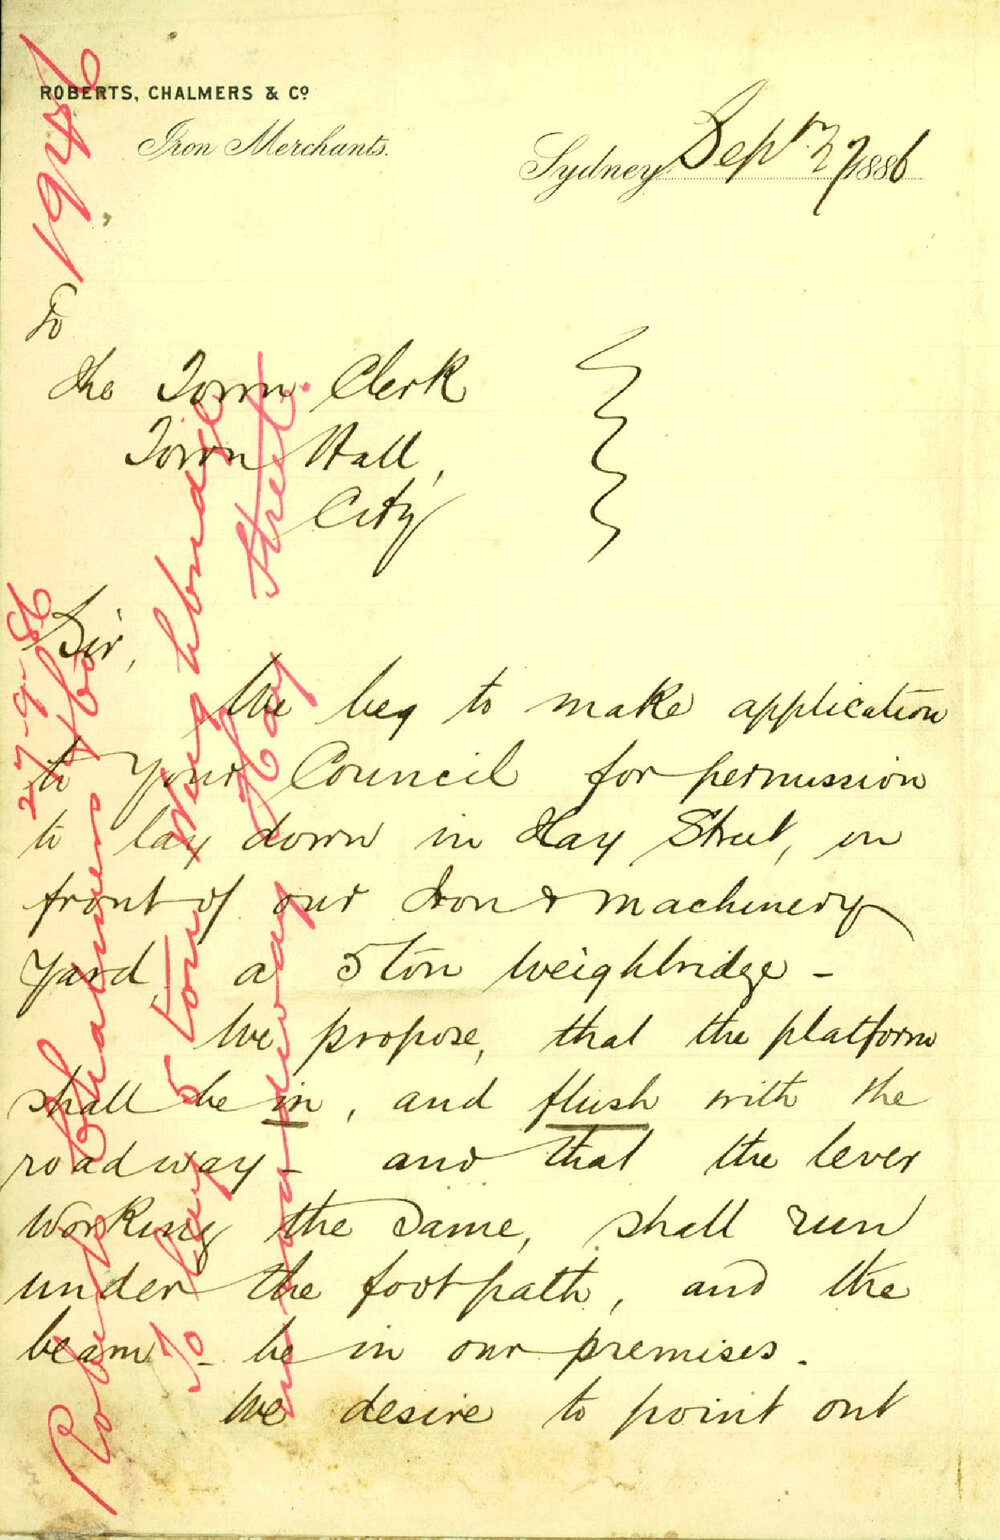 ROBERTS, CHALMERS & Co
Iron Merchants.
Sydney Sepr 27 1886
To
The Town Clerk
Town Hall,
City
Sir,
We beg to make application
to Your Council for permission
to lay down in Hay Street, in
front of our Iron & Machinery
Yard, a 5 ton weighbridge -
We propose, that the platform
shall be in, and flush with the
roadway - and that the lever
working the same, shall run
under the footpath, and the
beam - be in our premises.
We desire to point out
1946
27-9-86
Roberts Chalmers & Co
To lay 5 ton Weighbridge
in roadway Hay Street.